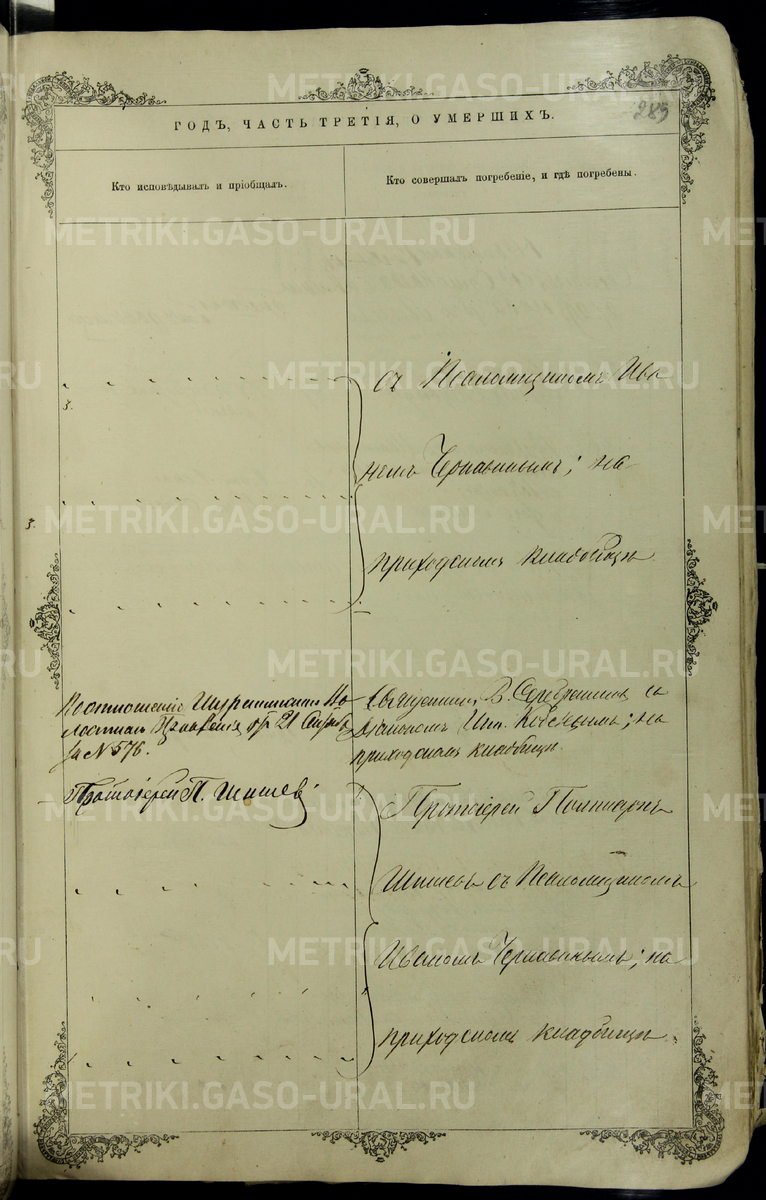 283
ГОДЪ, ЧАСТЬ ТРЕТІЯ, О УМЕРШИХЪ.
Кто исповѣдывалъ и пріобщалъ.
Кто совершалъ погребеніе, и гдѣ погребены.
съ Псаломщикомъ Ива
номъ Чернавинымъ; на
приходскомъ кладбищѣ.
По отношенію Во
лостнаго Правленія отъ 21
за № 576.
Священникъ В. съ
Діакономъ на
приходскомъ кладбищѣ.
Протоіерей П. Шишевъ
Протоіерей
Шишевъ съ Псаломщикомъ
Иваномъ Чернавинымъ; на
приходскомъ кладбищѣ.
METRIKI.GASO-URAL.RU